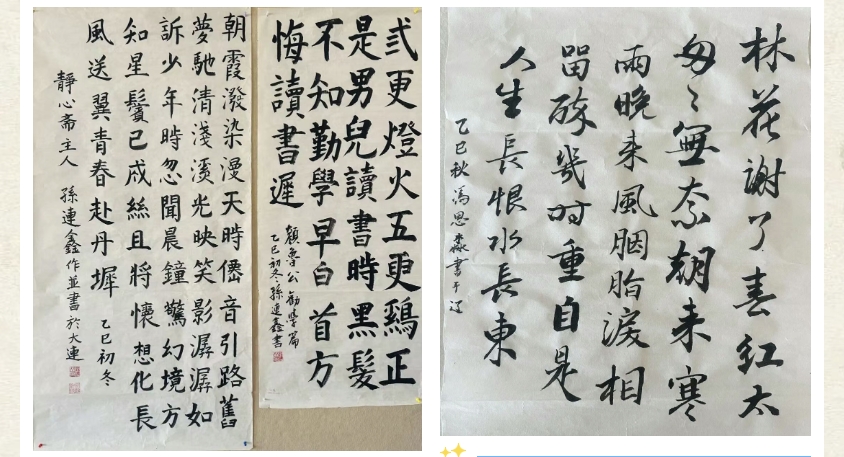 朝霞潑染漫天時儘音引路舊
夢馳清淺濱光映笑影潺潺如
訴少年時忽聞晨鐘驚幻境方
知星鬢已成絲且將懷想化長
風送翼青春赴丹墀 乙巳初冬
靜心斋主人 孫連鑫作並書於大連
弍更燈火五更鷄正
是男兒讀書時黑髮
不知勤學早白首方
悔讀書遲
顏魯公勸學篇
乙巳初冬孫連鑫書
林花謝了春紅太
匆匆無奈朝来寒
雨晚来風胭脂淚相
留醉幾时重自是
人生長恨水長東
乙巳秋馮思淼書于